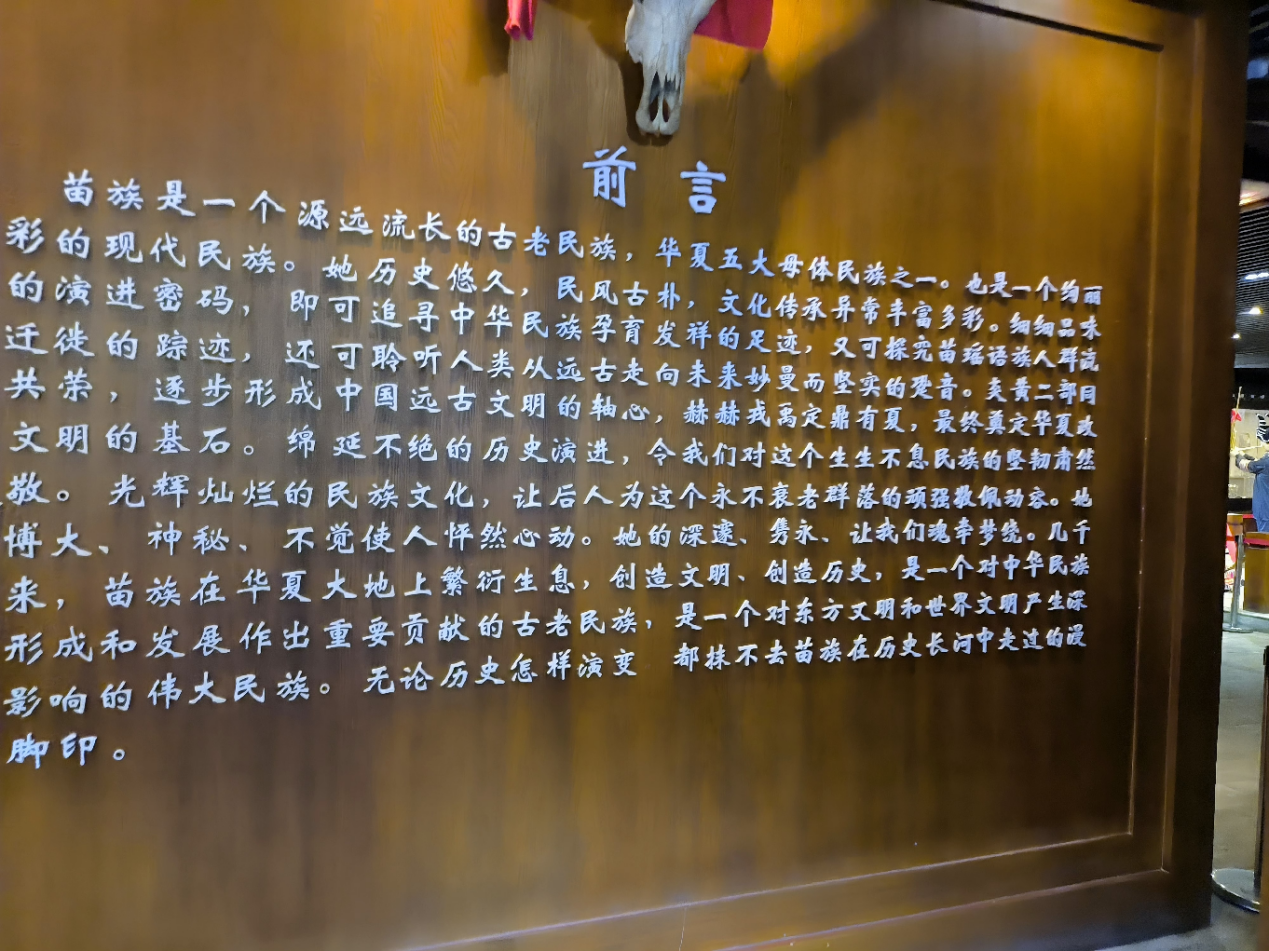 前言
苗族是一个源远流长的古老民族，华夏五大母体民族之一。也是一个绚丽
彩的现代民族。她历史悠久，民风古朴，文化传承异常丰富多彩。细细品味
的演进密码，即可追寻中华民族孕育发祥的足迹，又可探究苗瑶语族人群流
迁徙的踪迹，还可聆听人类从远古走向未来妙曼而坚实的跫音。炎黄二部同
共荣，逐步形成中国远古文明的轴心，赫赫戎禹定鼎有夏，最终奠定华夏改
文明的基石。绵延不绝的历史演进，令我们对这个生生不息民族的坚韧肃然
敬。光辉灿烂的民族文化，让后人为这个永不衰老群落的顽强敬佩动容。她
博大、神秘、不觉使人怦然心动。她的深邃、隽永、让我们魂牵梦绕。几千
来，苗族在华夏大地上繁衍生息，创造文明、创造历史，是一个对中华民族
形成和发展作出重要贡献的古老民族，是一个对东方文明和世界文明产生深
影响的伟大民族。无论历史怎样演变 都抹不去苗族在历史长河中走过的漫
脚印。